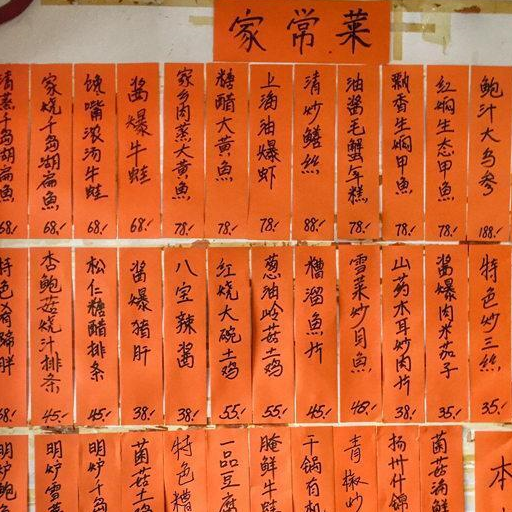 家常菜
清蒸千岛湖扁魚 68.-
家烧千岛湖扁魚 68.-
馋嘴浓汤牛蛙 68.-
酱爆牛蛙 68.-
家乡肉蒸大黄魚 78.-
糖醋大黄魚 78.-
上海油爆虾 78.-
清炒鳝丝 88.-
油酱毛蟹年糕 78.-
飘香生焖甲魚 78.-
红焖生态甲魚 78.-
鲍汁大乌参 188.-
特色 38.-
杏鲍菇烧汁排条 45.-
松仁糖醋排条 45.-
酱爆猪肝 38.-
八宝辣酱 38.-
红烧大碗土鸡 55.-
葱油岭菇土鸡 55.-
糟溜魚片 45.-
雪菜炒目魚 48.-
山药木耳炒肉片 38.-
酱爆肉米茄子 35.-
特色炒三丝 35.-
明炉鲍
明炉雪菜
明炉千岛
菌菇土鸡
特色糟
一品豆腐
腌鲜牛蛙
干锅有机
青椒炒
扬州什锦
菌菇海鲜
本